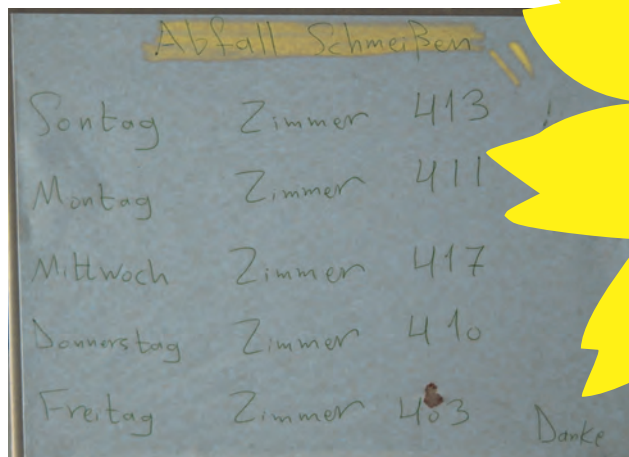 Abfall Schmeißen
Sontag Zimmer 413 !
Montag Zimmer 411
Mittwoch Zimmer 417
Donnerstag Zimmer 410
Freitag Zimmer 403
Danke